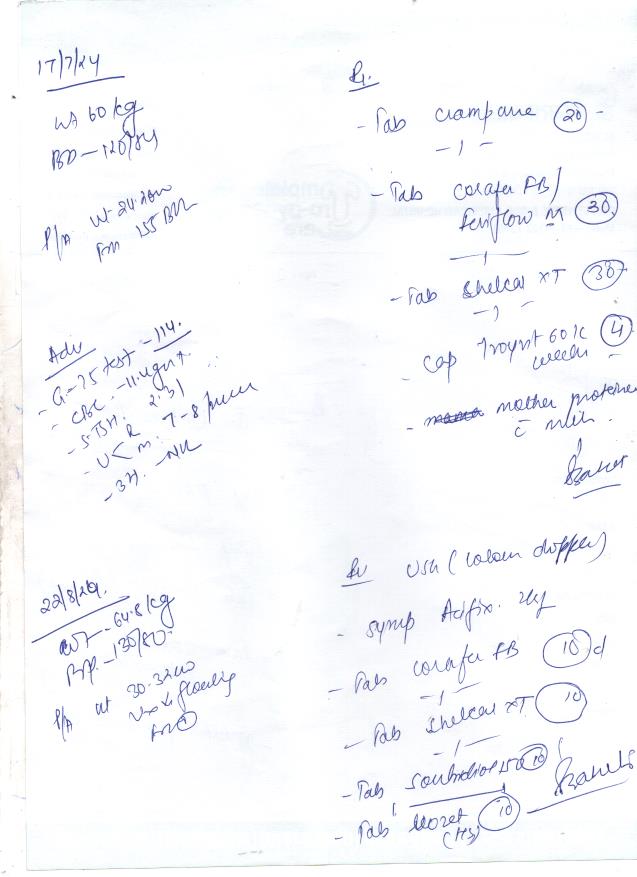 17/7/24
Wt 60 kg
BP - 120/84
P/A Ut 24-26w
155 B/M
Adv
- G-75 test - 114.
- CBC - 11.4gm
- S. TSH. 2.31
- U < R
M. 7-8 puscell
- 3H. - NR
Rx.
- Tab 20 -
- 1 -
- Tab Corafer FB /
Feriflow M 30
- 1 -
- Tab Shelcal XT 30
- 1 -
- Cap 60K 4
weekly
- mother protein
c milk.
22/8/24.
WT - 64.8 kg
BP. - 130/80.
P/A Ut 30-32w
Vx floating
Rx USG (colour doppler)
- Syrup Acifix. 2tsf
- Tab Corafer FB 10 d
- 1 -
- Tab Shelcal XT 10
- 1 -
- Tab 150 10
- Tab 10
(HS)